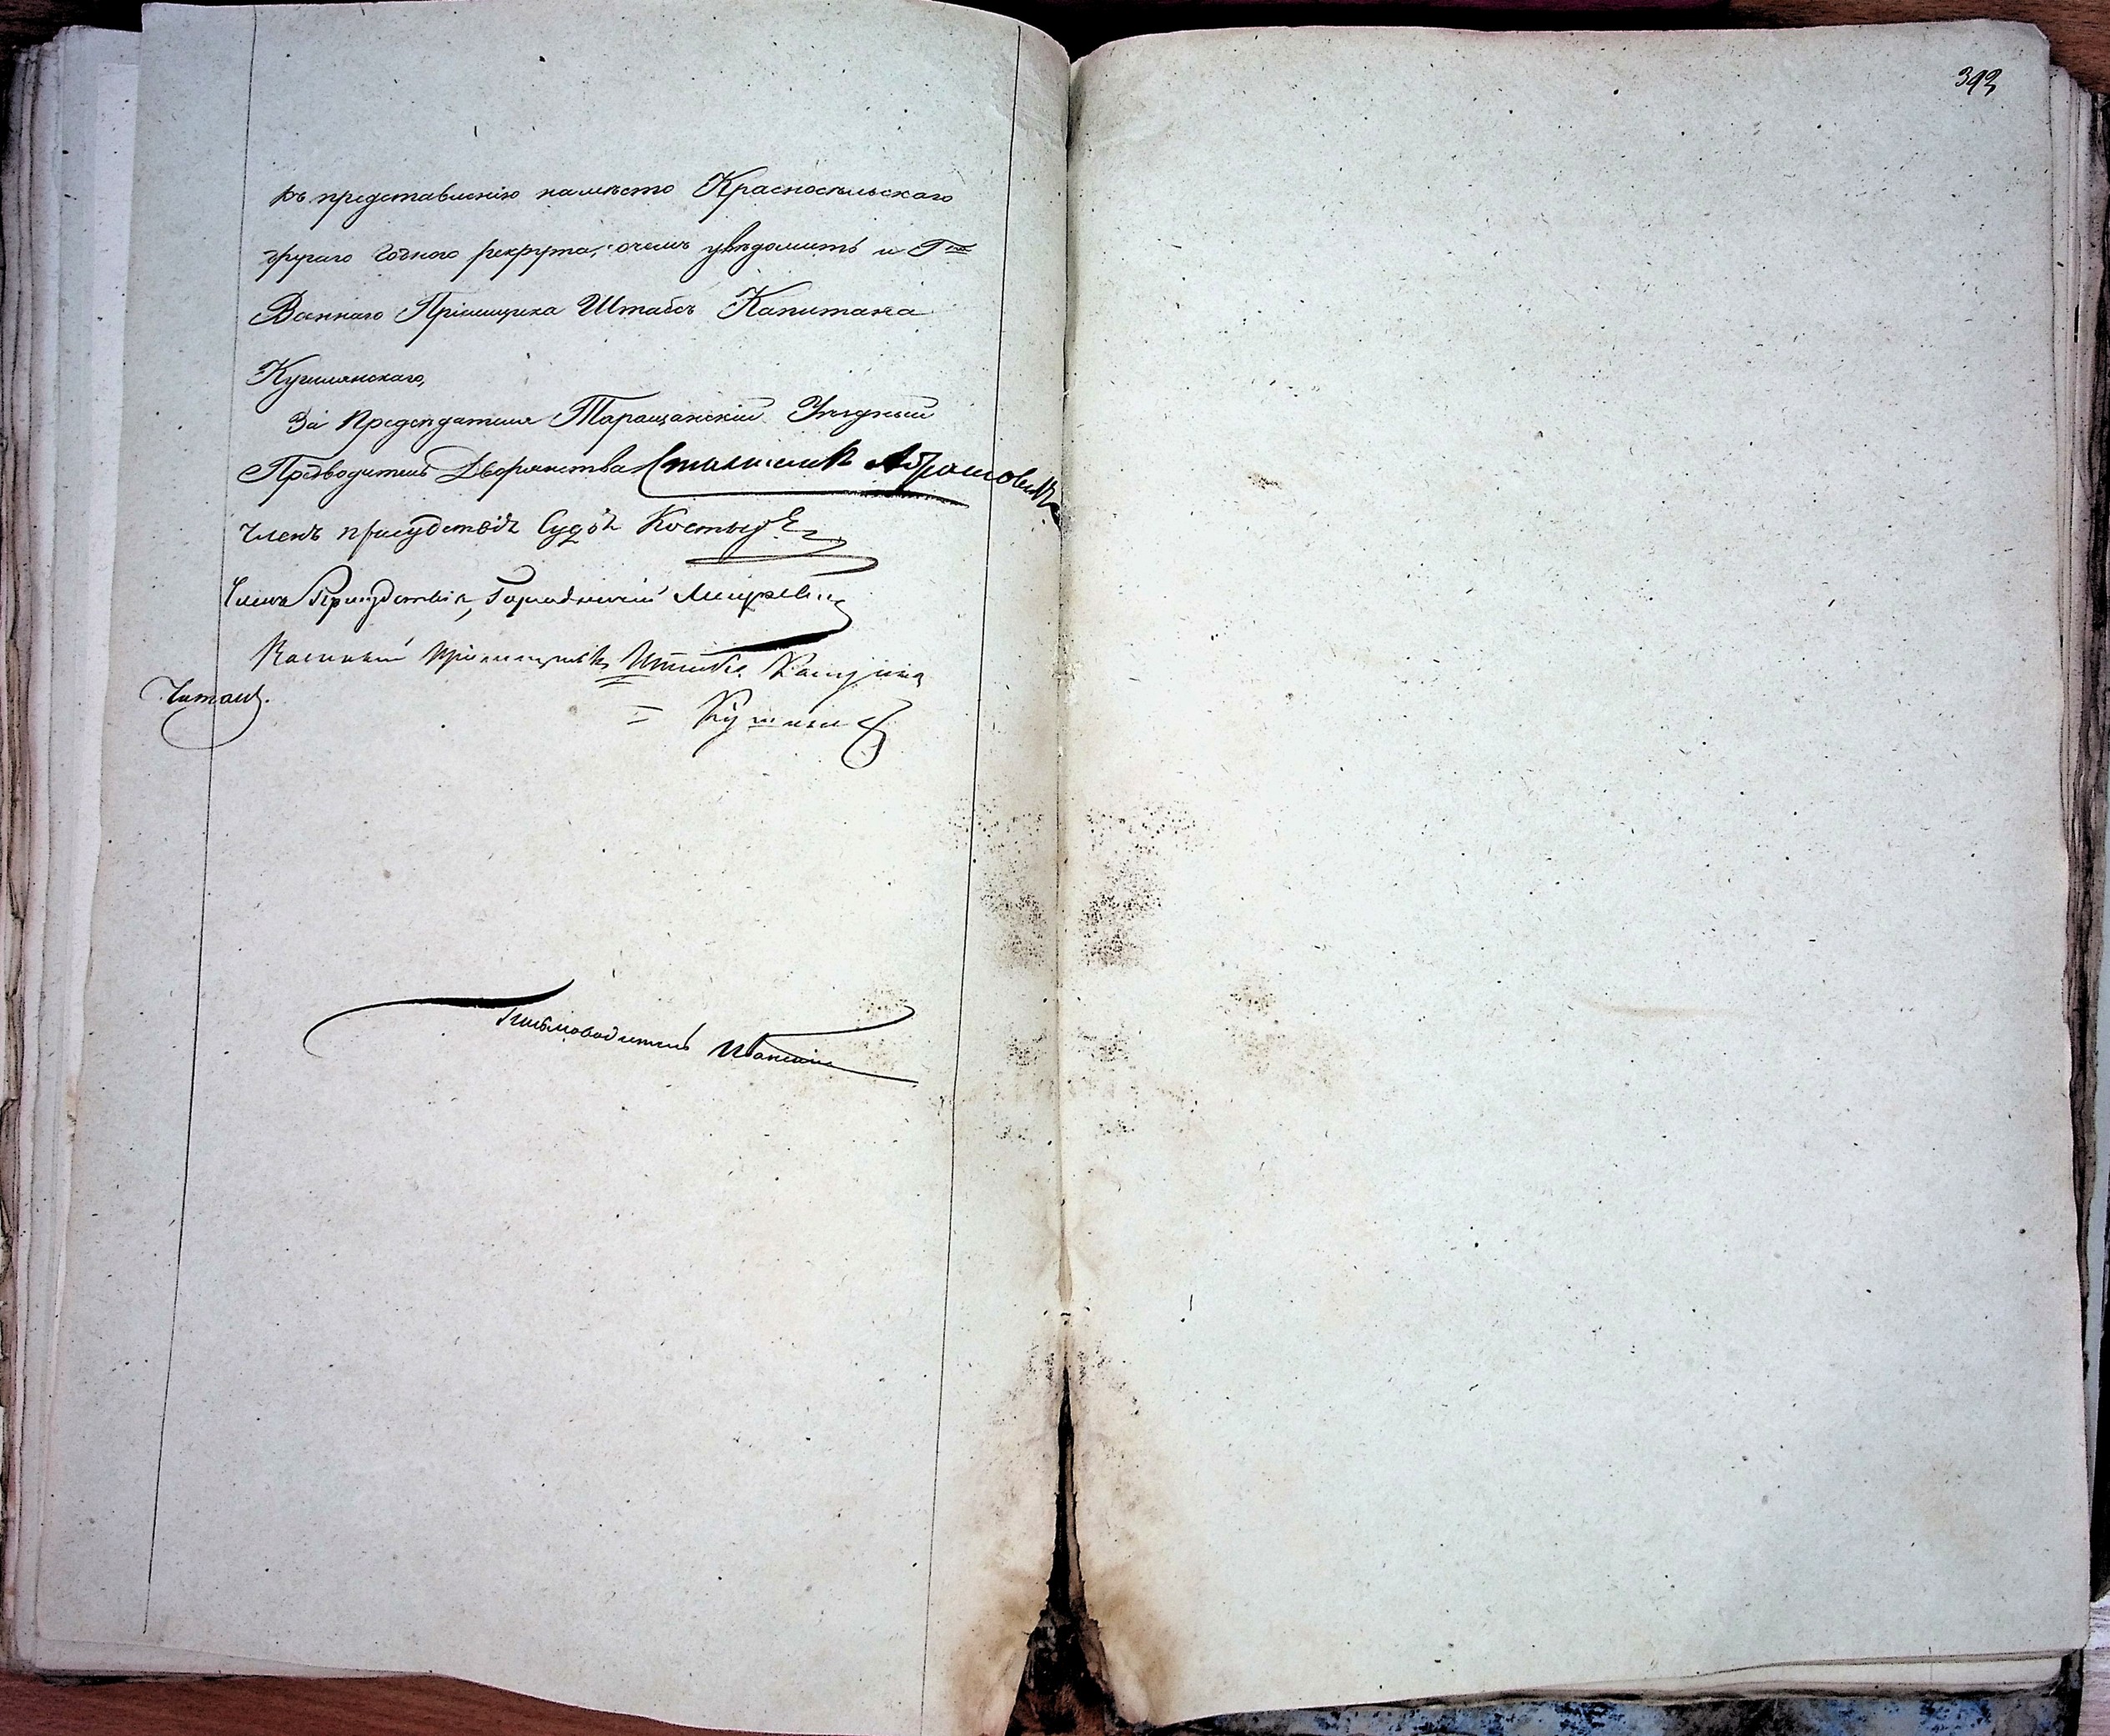 къ представленію намѣсто Красносѣльскаго
другаго годнаго рекрута, очемъ увѣдомить и Гна
Военнаго Пріемщика Штабсъ Капитана
За Предсѣдателя Таращанскій Уѣздный
Предводитель Дворянства Станиславъ Абрамовичъ
Членъ присудствія Судья
Членъ Присудствія, Городничій
Военный Пріемщикъ Штабсъ Капитанъ
Читалъ.
Письмоводитель
393